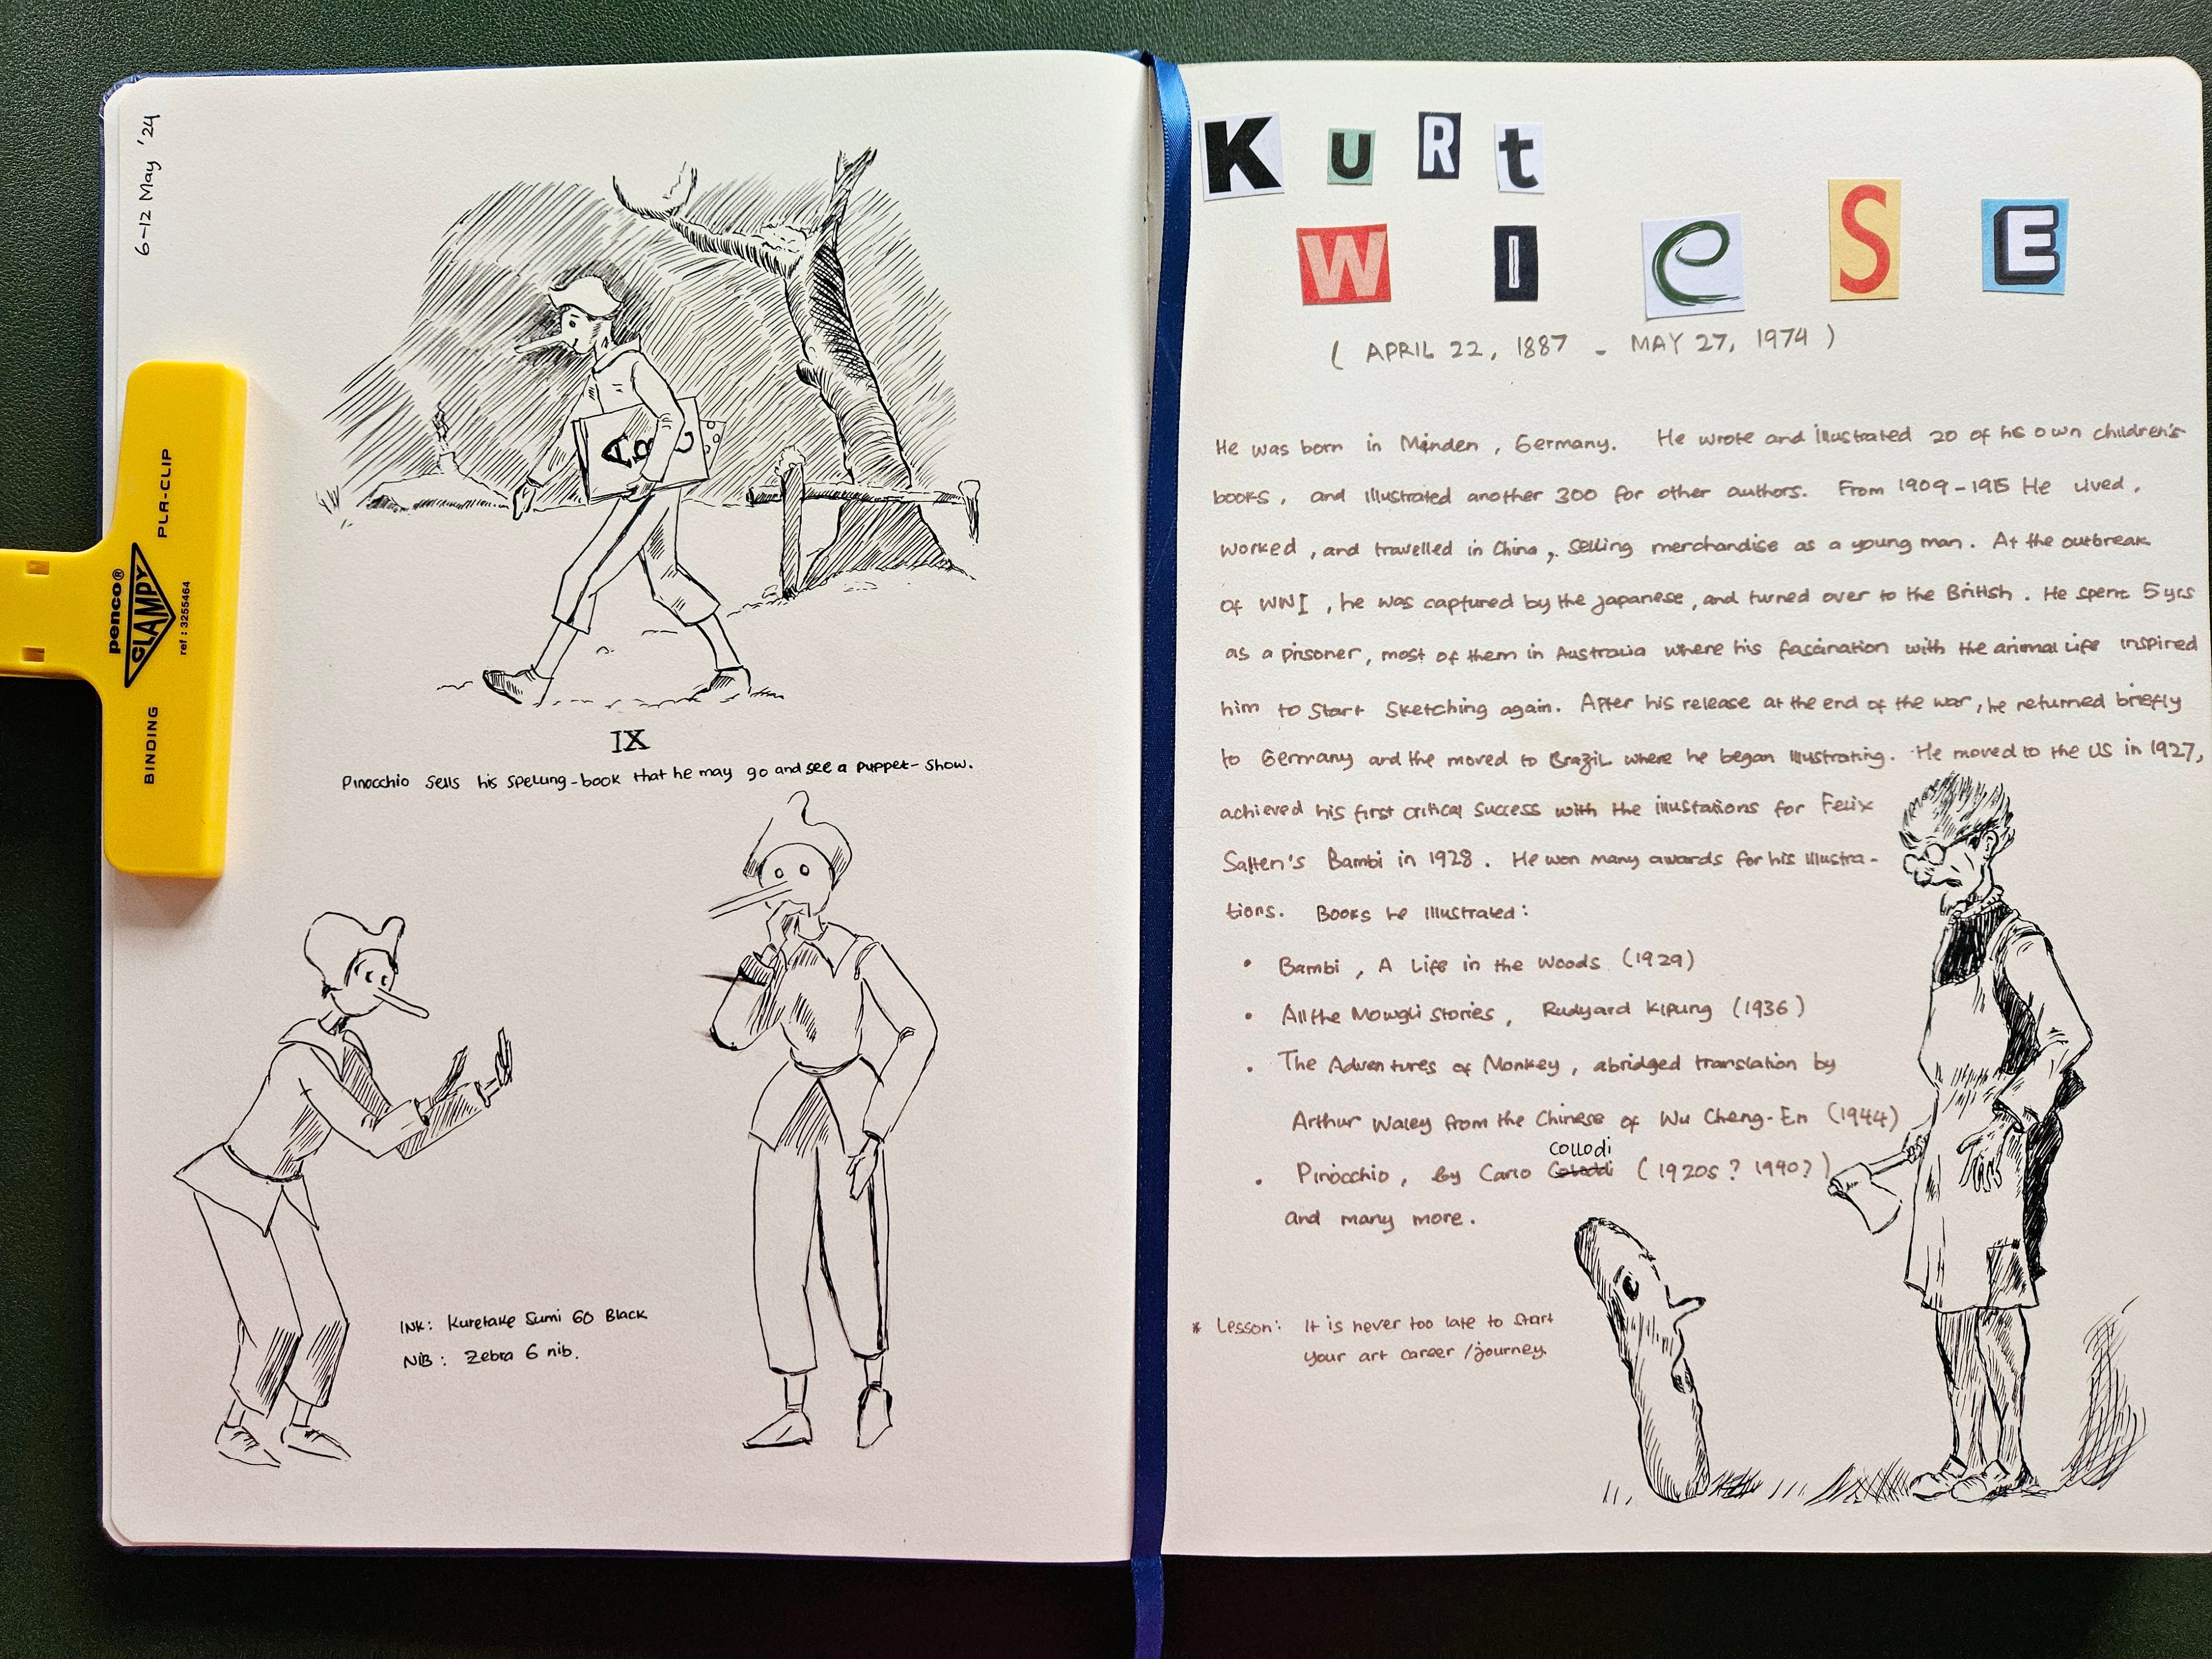 6-12 May '24
penco®
CLAMPY
BINDING PLA-CLIP
ref : 3255464
A B C
IX
Pinocchio sells his spelling-book that he may go and see a puppet-show.
INK: Kuretake Sumi 60 Black
NIB: Zebra G nib.
KURt
WIeSE
( APRIL 22, 1887 - MAY 27, 1974 )
He was born in Minden, Germany. He wrote and illustrated 20 of his own children's
books, and illustrated another 300 for other authors. From 1909-1915 He lived,
worked, and travelled in China, selling merchandise as a young man. At the outbreak
of WWI, he was captured by the Japanese, and turned over to the British. He spent 5 yrs
as a prisoner, most of them in Australia where his fascination with the animal life inspired
him to start sketching again. After his release at the end of the war, he returned briefly
to Germany and the moved to Brazil where he began illustrating. He moved to the US in 1927,
achieved his first critical success with the illustations for Felix
Salten's Bambi in 1928. He won many awards for his illustra-
tions. Books he illustrated:
• Bambi, A Life in the Woods (1929)
• All the Mowgli Stories, Rudyard Kipling (1936)
• The Adventures of Monkey, abridged translation by
Arthur Waley from the Chinese of Wu Cheng-En (1944)
• Pinocchio, by Carlo Collodi (1920s? 1990?)
and many more.
* Lesson: It is never too late to start
your art career/journey.